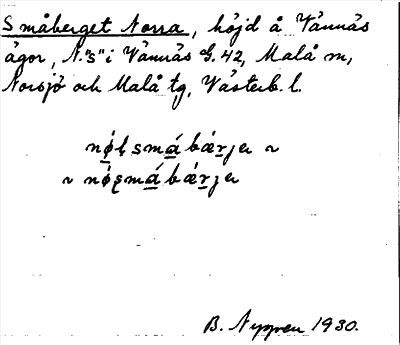 Småberget Norra, höjd å Vännäs
ägor, N. "S" i Vännäs G. 42, Malå sn,
Norsjö och Malå tg, Västerb. l.
nǿ̱ɭsmá̱bǽrjeɹ ~
~ nǿ̱ʂmá̱bǽrjeɹ
B. Nygren 1930.